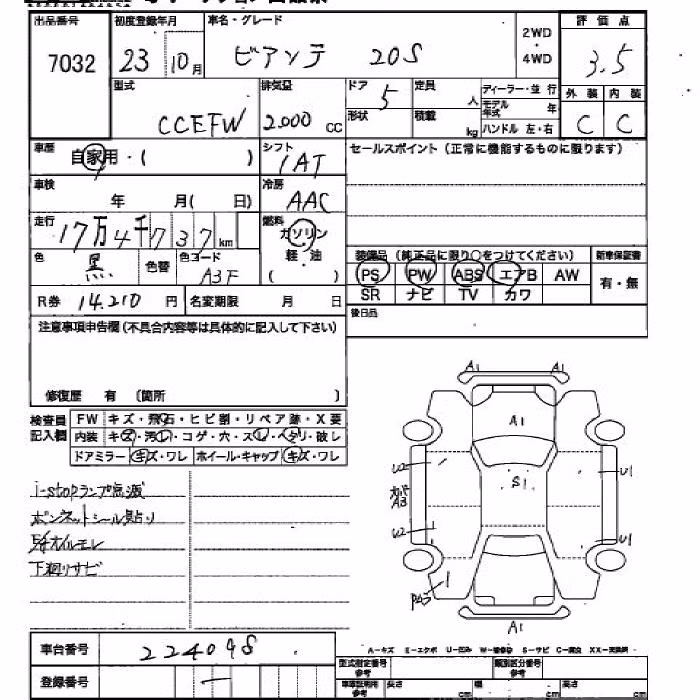 出品番号 初度登録年月 車名・グレード 評価点
7032 23 10月 ビアンテ 20S 2WD・4WD 3.5
型式 排気量 ドア 定員 ディーラー・並行 外装 内装
CCEFW 2.000 CC 5 人 モデル年式 年 C C
形状 積載 kg ハンドル 左・右
車歴 自家用・( ) シフト セールスポイント(正常に機能するものに限ります)
1AT
車検 年 月( 日) 冷房 AAC
走行 17万4千737km 燃料 ガソリン
色 黒 色替 色コード A3F 軽・油 ( )
装備品(純正品に限り○をつけてください) 新車保証書
PS PW ABS エアB AW 有・無
SR ナビ TV カワ
R券 14.210円 名変期限 月 日
後日品
注意事項申告欄(不具合内容等は具体的に記入して下さい)
修復歴 有 (箇所 )
検査員記入欄 FW キズ・飛石・ヒビ割・リペア跡・X要
内装 キズ・汚レ・コゲ・穴・スレ・ヘタリ・破レ
ドアミラー キズ・ワレ ホイール・キャップ キズ・ワレ
i-stopランプ点滅
ボンネットシール貼り
オイルモレ
下廻りサビ
A1 A1
A1
U2 S1 U1
カバー A3
U2 U1
A1
A-キズ E-エクボ U-凹み W-補修跡 S-サビ C-腐食 XX-交換済
車台番号 224098
型式指定番号参考 類別区分番号参考
登録番号 —
車車証明用参考 長さ cm 幅 cm 高さ cm